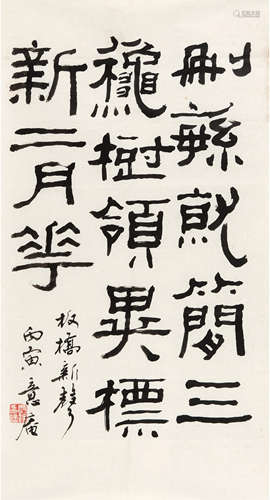 刪緐就簡三
龝樹領異標
新二月花
板橋新
丙寅 意庵